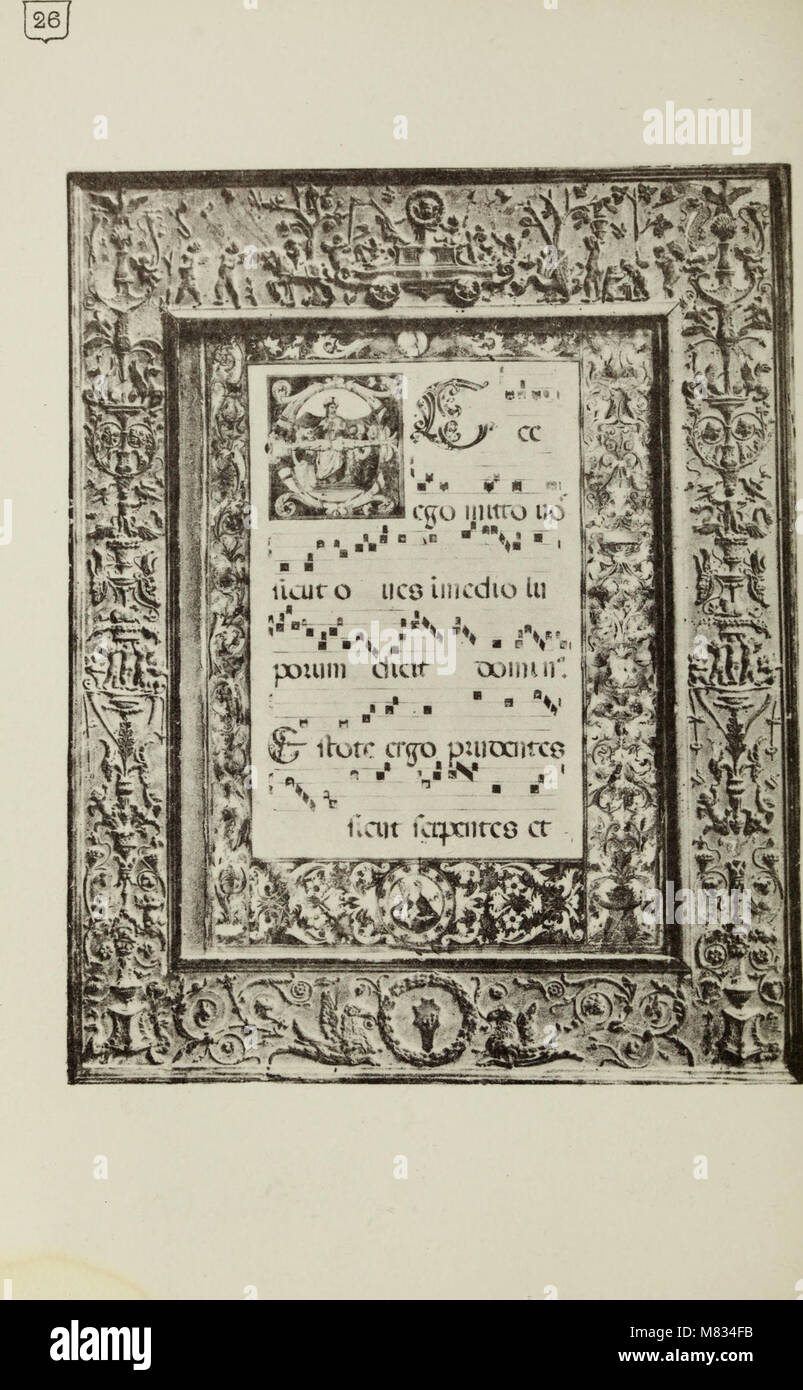 26
Ecce
ego mitto uos
sicut oues i medio lu
porum dicit domin'.
Estote ergo prudentes
sicut serpentes et
alamy
Image ID: M834FB
www.alamy.com